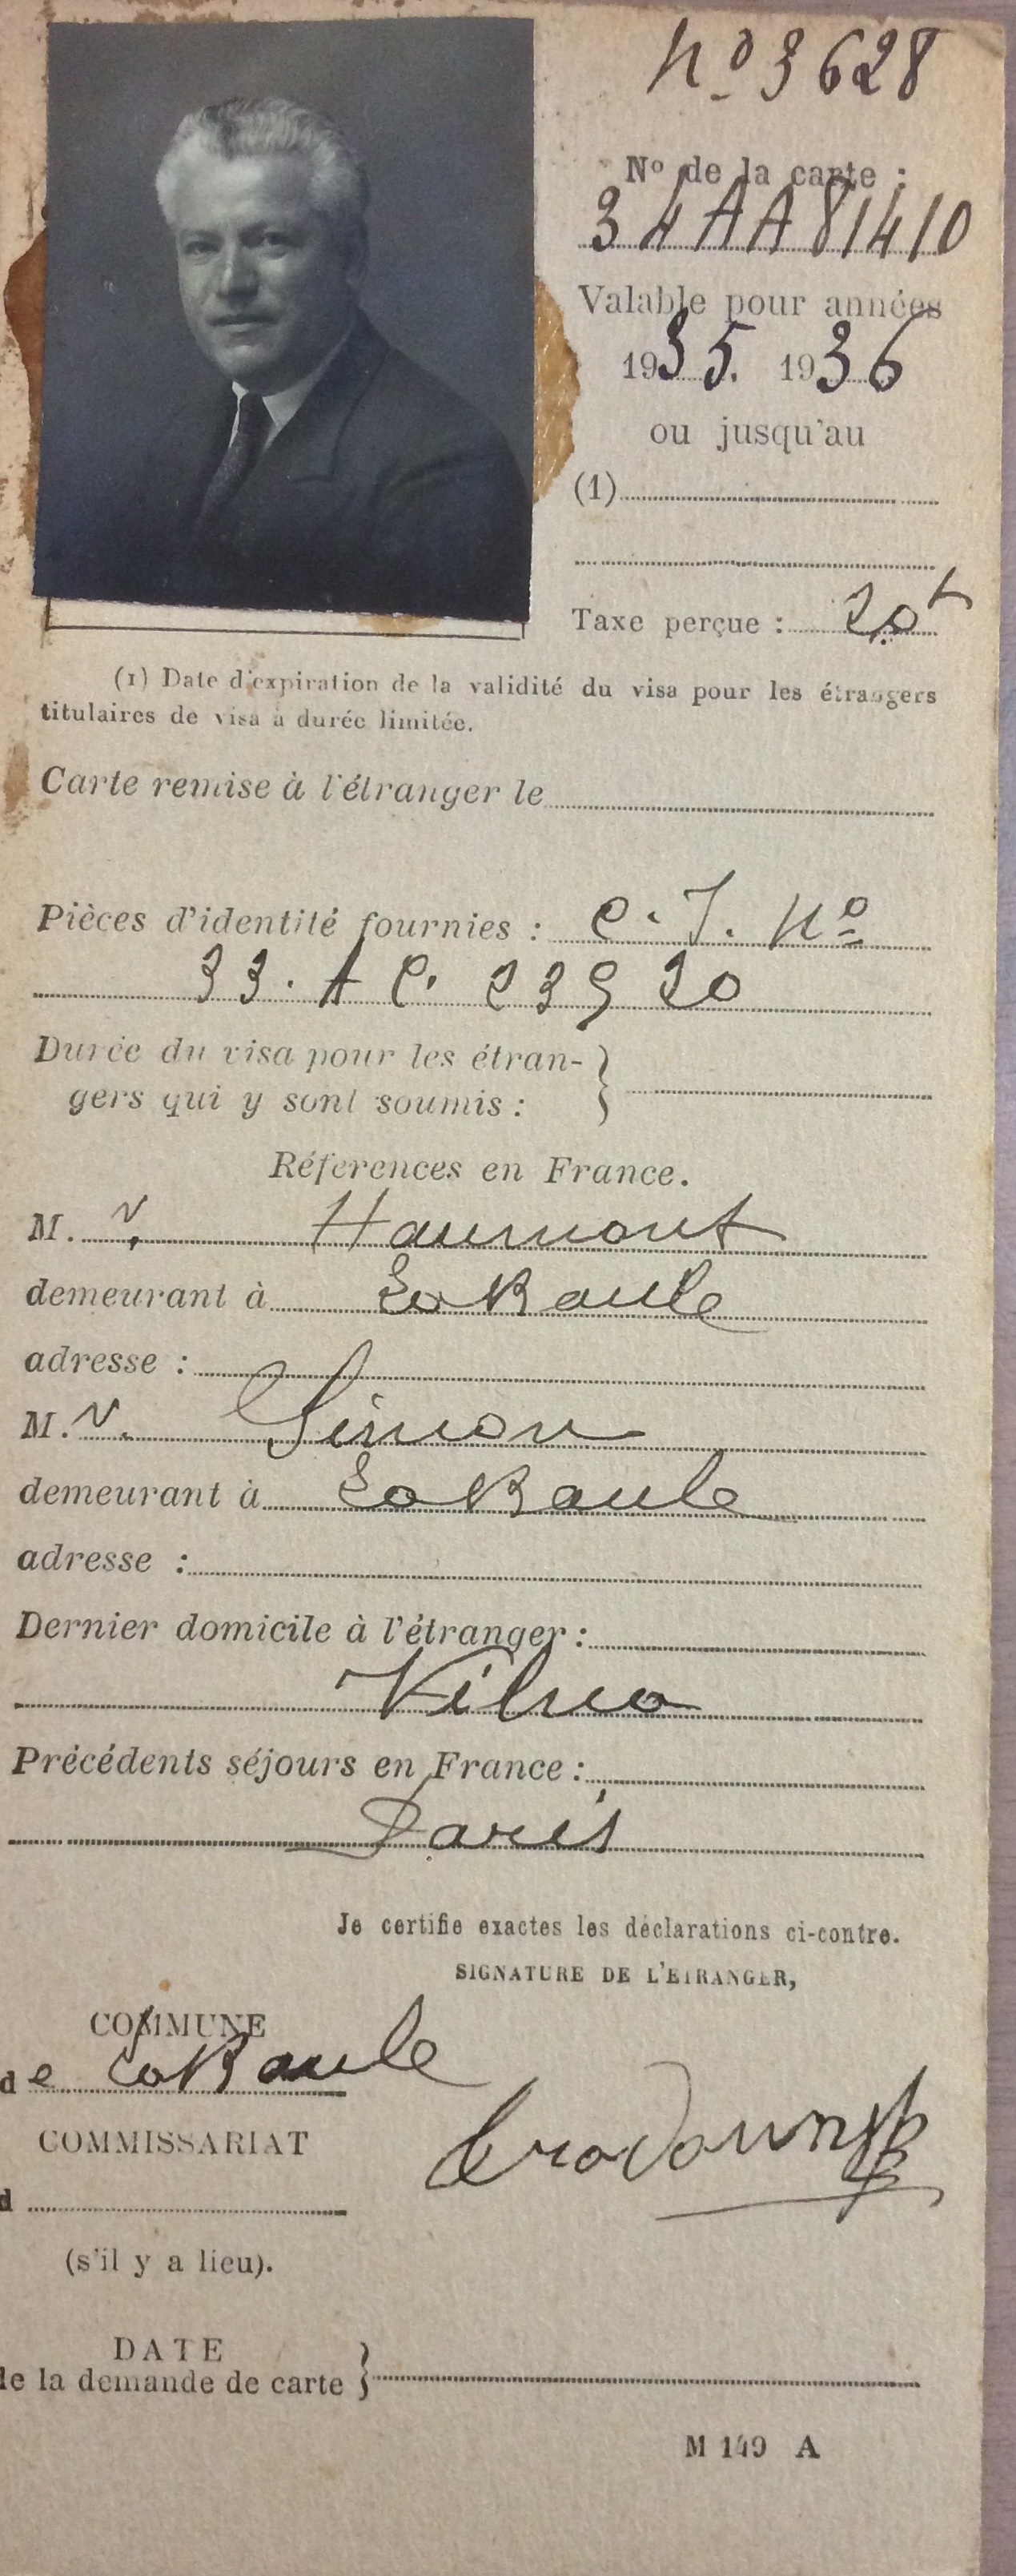 Nº 3628
Nº de la carte :
34AA81410
Valable pour années
1935. 1936
ou jusqu'au
(1)
Taxe perçue : 20f
(1) Date d'expiration de la validité du visa pour les étrangers
titulaires de visa à durée limitée.
Carte remise à l'étranger le
Pièces d'identité fournies : C. I. Nº
33. A C. 23920
Durée du visa pour les étran-
gers qui y sont soumis :
Références en France.
M. r. Haumont
demeurant à La Baule
adresse :
M. r. Simon
demeurant à La Baule
adresse :
Dernier domicile à l'étranger :
Vilno
Précédents séjours en France :
Paris
Je certifie exactes les déclarations ci-contre.
SIGNATURE DE L'ETRANGER,
COMMUNE
de La Baule
COMMISSARIAT
d
(s'il y a lieu).
DATE
de la demande de carte
M 149 A